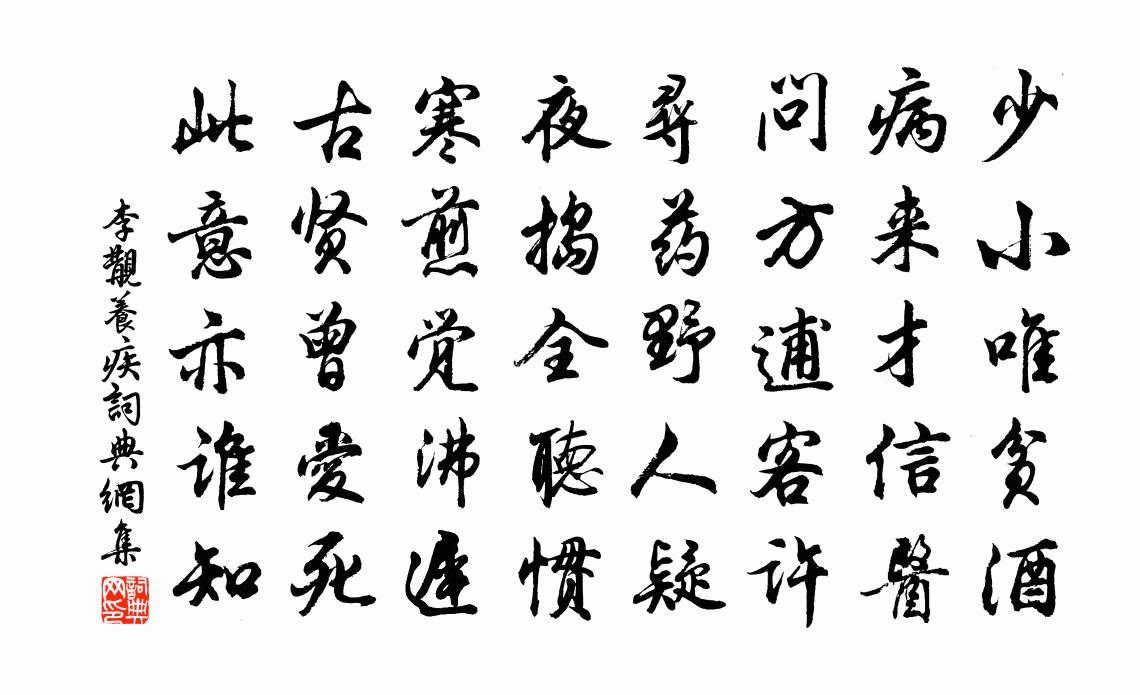 少小唯贪酒
病来才信醫
问方逋客许
尋药野人疑
夜捣全聽惯
寒煎觉沸遲
古贤曾愛死
此意亦谁知
李覯養疾詞典網集
詞典网印